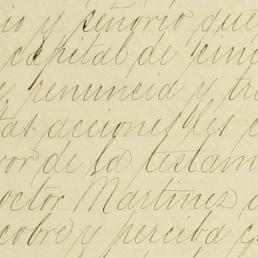 io y señorio que
capital de cinc
y renuncia y tr
tas acciones les c
vor de la testam
octor Martinez
cobre y perciba q